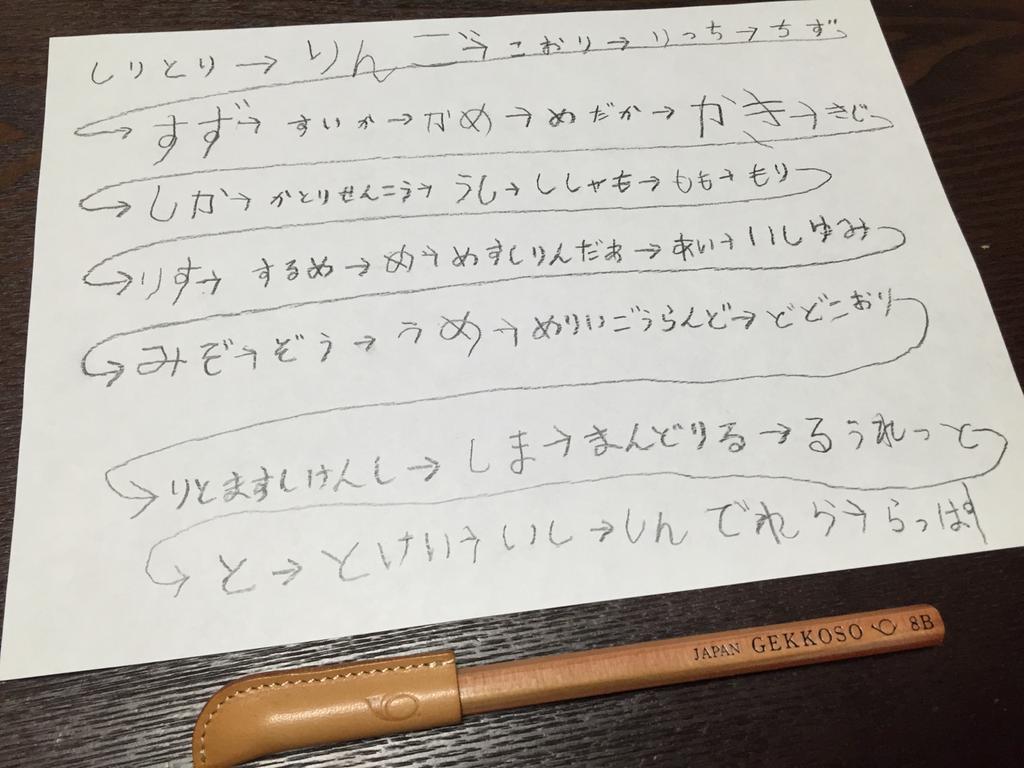 しりとり→りんご→こおり→りっち→ちず
→すず→すいか→かめ→めだか→かき→きじ
→しか→かとりせんこう→うし→ししゃも→もも→もり
→りす→するめ→め→めすしりんだあ→あい→いしゆみ
→みぞ→ぞう→うめ→めりいごうらんど→どどこおり
→りとますしけんし→しま→まんどりる→るうれっと
→と→とけい→いし→しんでれら→らっぱ
JAPAN GEKKOSO 8B